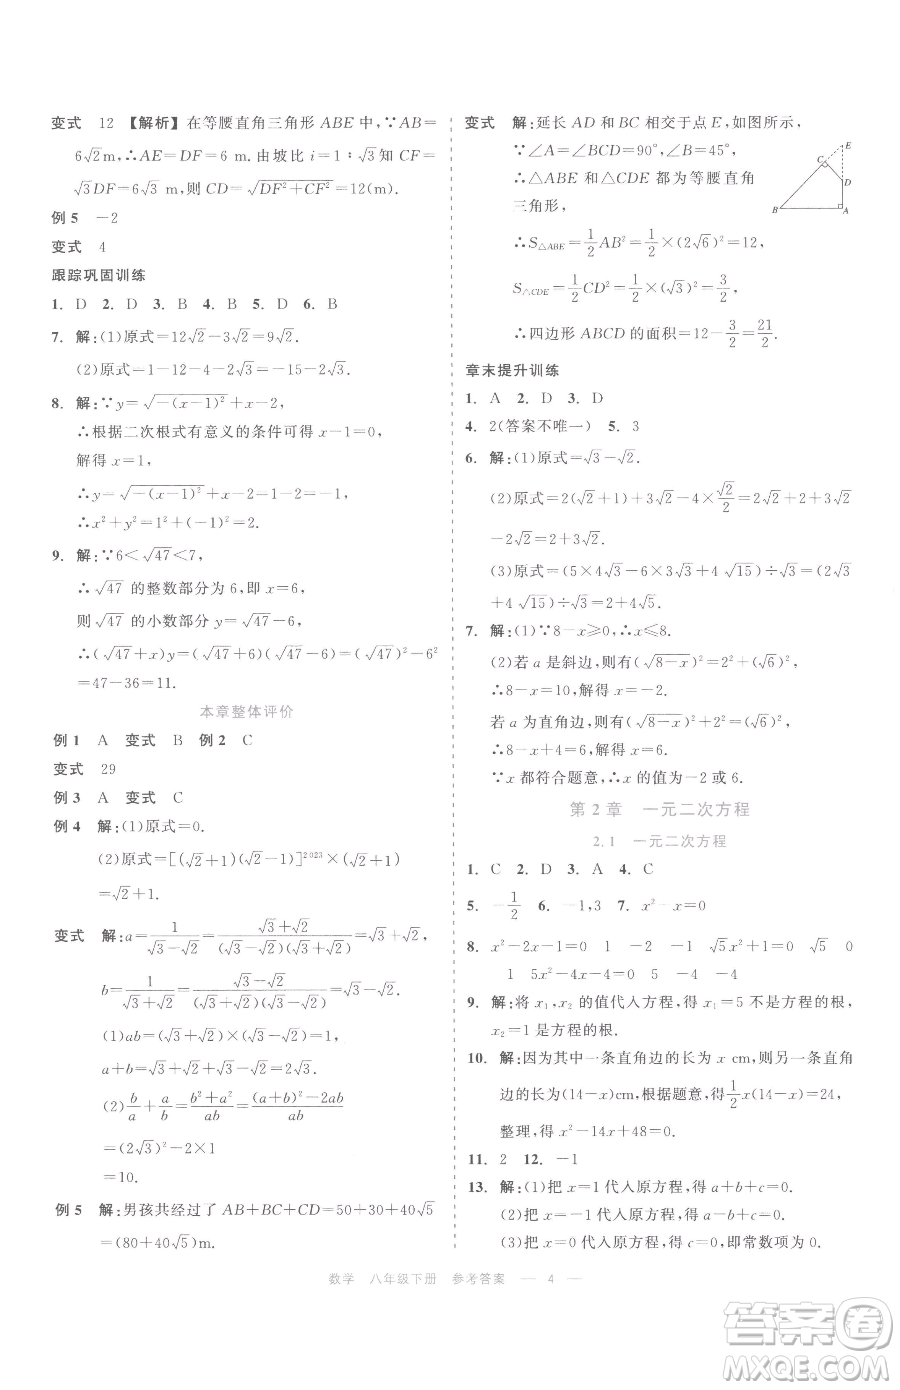 变式 12 【解析】在等腰直角三角形 ABE 中,∵AB=
6√2 m,∴AE=DF=6 m. 由坡比 i=1∶√3 知 CF=
√3DF=6√3 m,则 CD=√(DF²+CF²)=12(m).
例 5 −2
变式 4
跟踪巩固训练
1. D 2. D 3. B 4. B 5. D 6. B
7. 解:(1)原式=12√2−3√2=9√2.
(2)原式=1−12−4−2√3=−15−2√3.
8. 解:∵y=√(−(x−1)²)+x−2,
∴根据二次根式有意义的条件可得 x−1=0,
解得 x=1,
∴y=√(−(x−1)²)+x−2=−1,
∴x²+y²=1²+(−1)²=2.
9. 解:∵6<√47<7,
∴√47 的整数部分为 6,即 x=6,
则 √47 的小数部分 y=√47−6,
∴(√47+x)y=(√47+6)(√47−6)=(√47)²−6²
=47−36=11.
本章整体评价
例 1 A 变式 B 例 2 C
变式 29
例 3 A 变式 C
例 4 解:(1)原式=0.
(2)原式=[(√2+1)(√2−1)]²⁰²³×(√2+1)
=√2+1.
变式 解:a=1/(√3−√2)=(√3+√2)/((√3−√2)(√3+√2))=√3+√2,
b=1/(√3+√2)=(√3−√2)/((√3+√2)(√3−√2))=√3−√2.
(1)ab=(√3+√2)×(√3−√2)=1,
a+b=√3+√2+√3−√2=2√3.
(2)b/a+a/b=(b²+a²)/ab=((a+b)²−2ab)/ab
=(2√3)²−2×1
=10.
例 5 解:男孩共经过了 AB+BC+CD=50+30+40√5
=(80+40√5)m.
变式 解:延长 AD 和 BC 相交于点 E,如图所示,
∵∠A=∠BCD=90°,∠B=45°,
∴△ABE 和△CDE 都为等腰直角
三角形,
E
C
D
B
A
∴S△ABE=1/2AB²=1/2×(2√6)²=12,
S△CDE=1/2CD²=1/2×(√3)²=3/2,
∴四边形 ABCD 的面积=12−3/2=21/2.
章末提升训练
1. A 2. D 3. D
4. 2(答案不唯一) 5. 3
6. 解:(1)原式=√3−√2.
(2)原式=2(√2+1)+3√2−4×√2/2=2√2+2+3√2
−2√2=2+3√2.
(3)原式=(5×4√3−6×3√3+4√15)÷√3=(2√3
+4√15)÷√3=2+4√5.
7. 解:(1)∵8−x≥0,∴x≤8.
(2)若 a 是斜边,则有(√(8−x))²=2²+(√6)²,
∴8−x=10,解得 x=−2.
若 a 为直角边,则有(√(8−x))²+2²=(√6)²,
∴8−x+4=6,解得 x=6.
∵x 都符合题意,∴x 的值为−2 或 6.
第 2 章 一元二次方程
2.1 一元二次方程
1. C 2. D 3. A 4. C
5. −1/2 6. −1,3 7. x²−x=0
8. x²−2x−1=0 1 −2 −1 √5x²+x=0 √5 0
1 5x²−4=0 5 −4 0
9. 解:将 x₁,x₂ 的值代入方程,得 x₁=5 不是方程的根,
x₂=1 是方程的根.
10. 解:因为其中一条直角边的长为 x cm,则另一直角
边的长为(14−x)cm,根据题意,得1/2x(14−x)=24,
整理,得 x²−14x+48=0.
11. 2 12. −1
13. 解:(1)把 x=1 代入原方程,得 a+b+c=0.
(2)把 x=−1 代入原方程,得 a−b+c=0.
(3)把 x=0 代入原方程,得 c=0.
数学 八年级下册 参考答案 — 4 —
答案圈
MXQE.COM